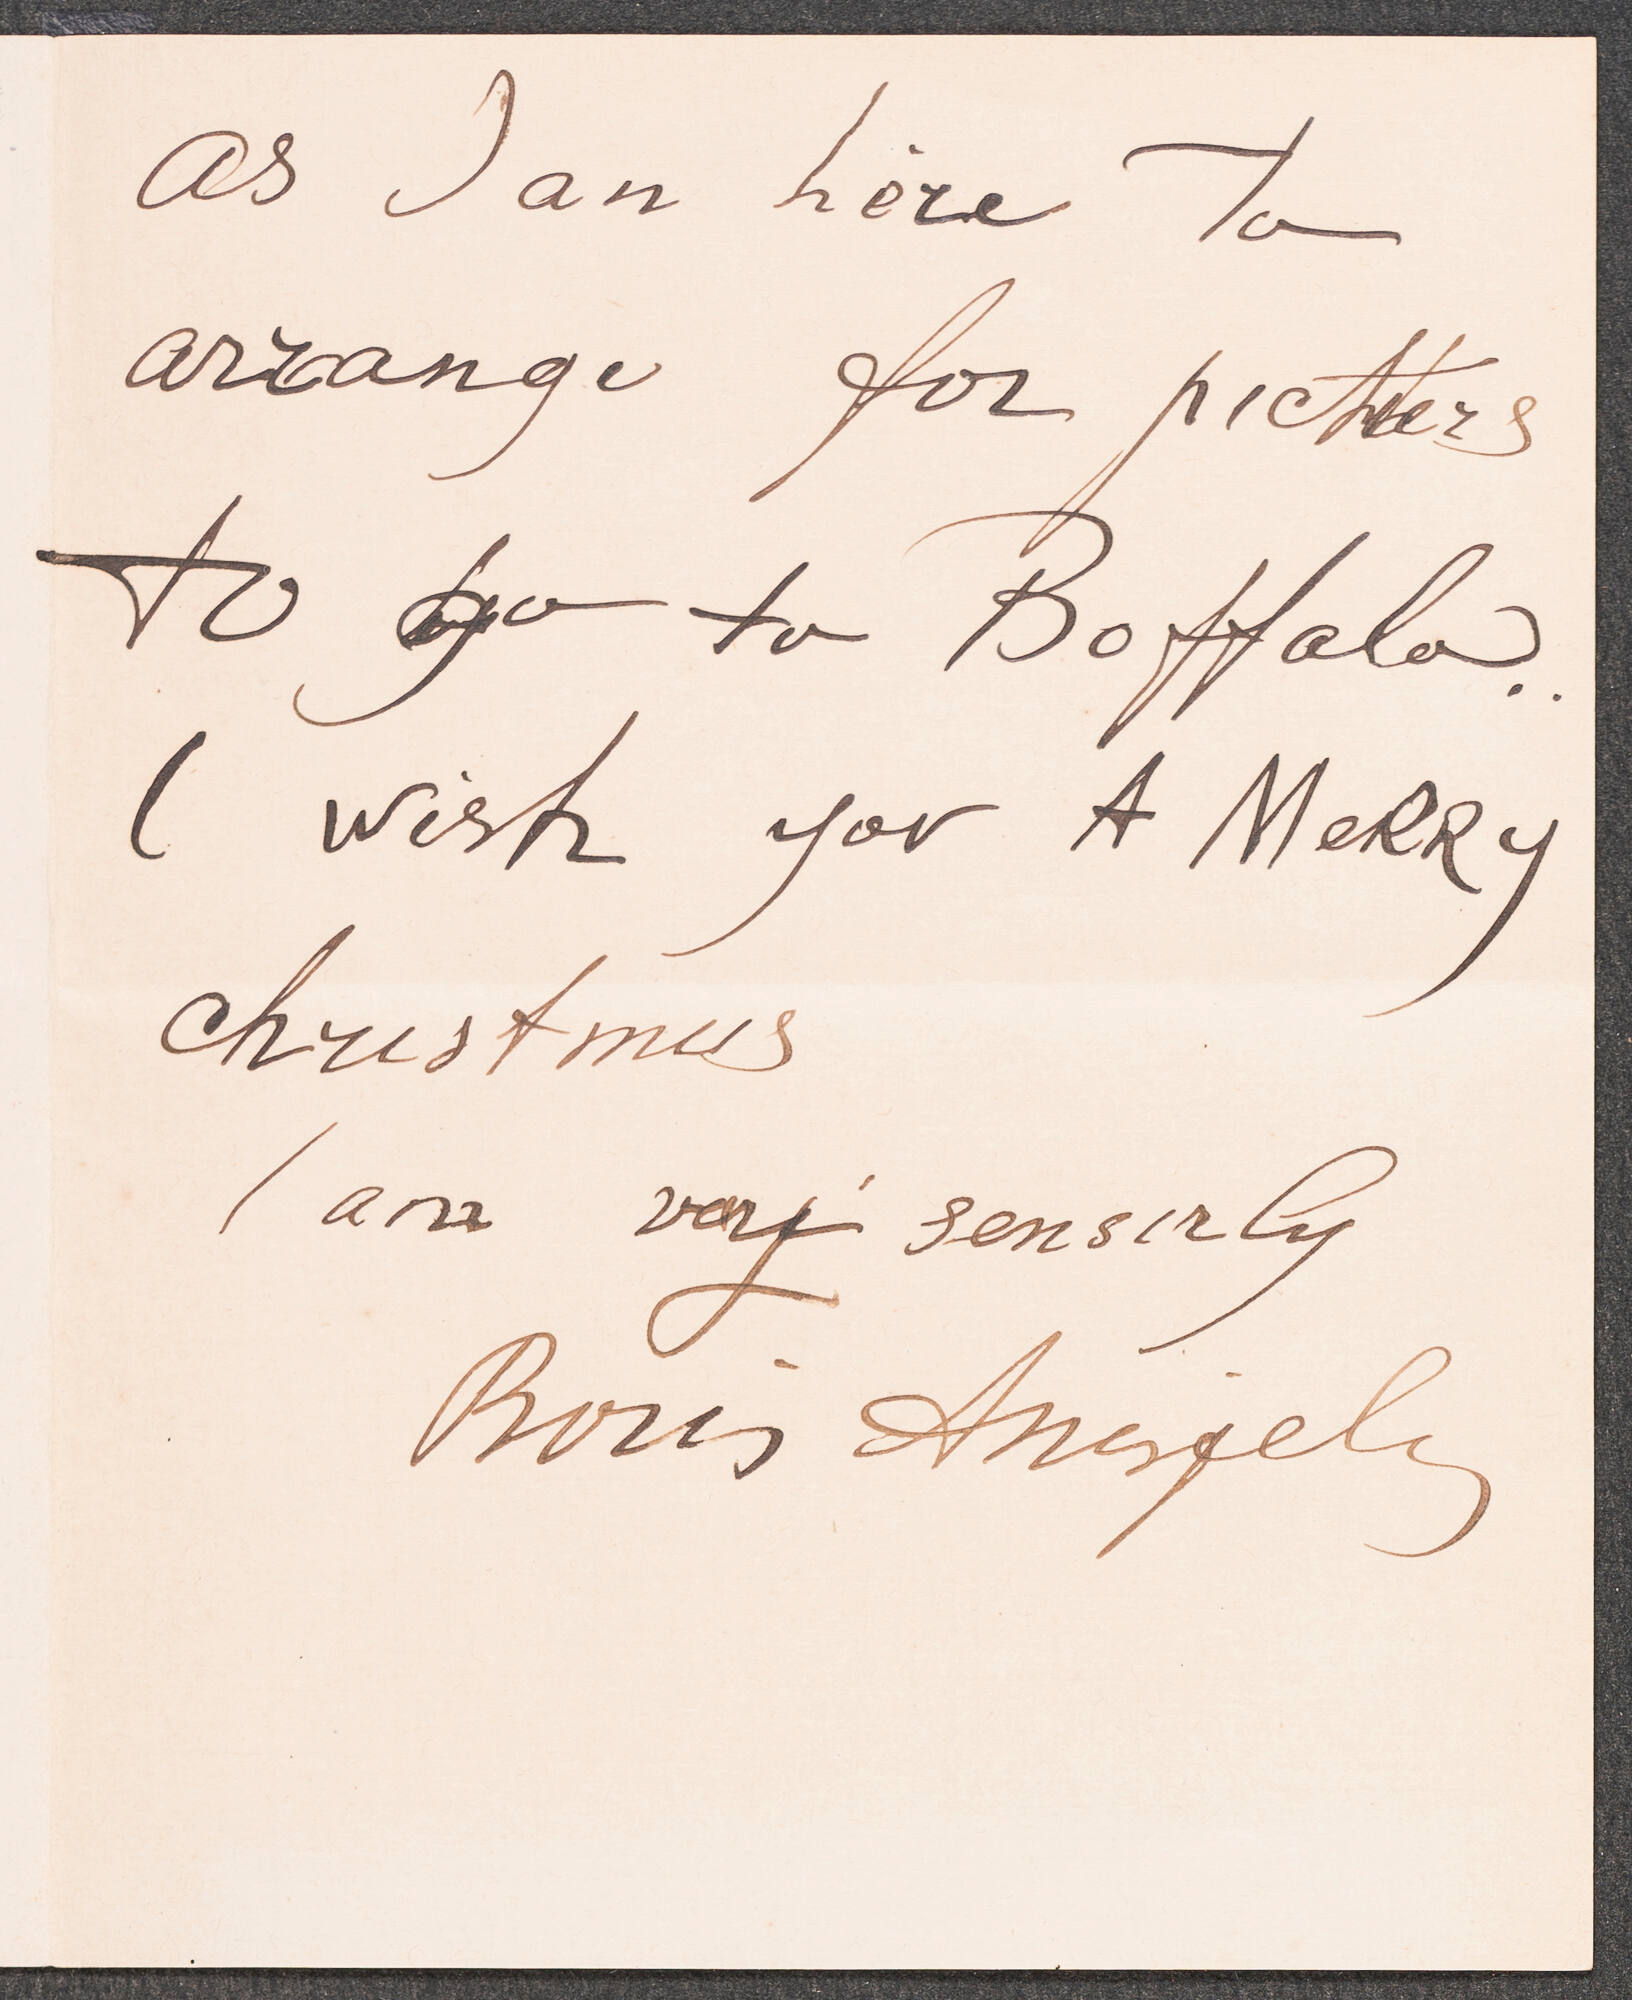 as I an here to
arrange for picters
to go to Boffalo..
I wish yov A MeRRy
christmus
I am very sensirly
Boris Anisfeld